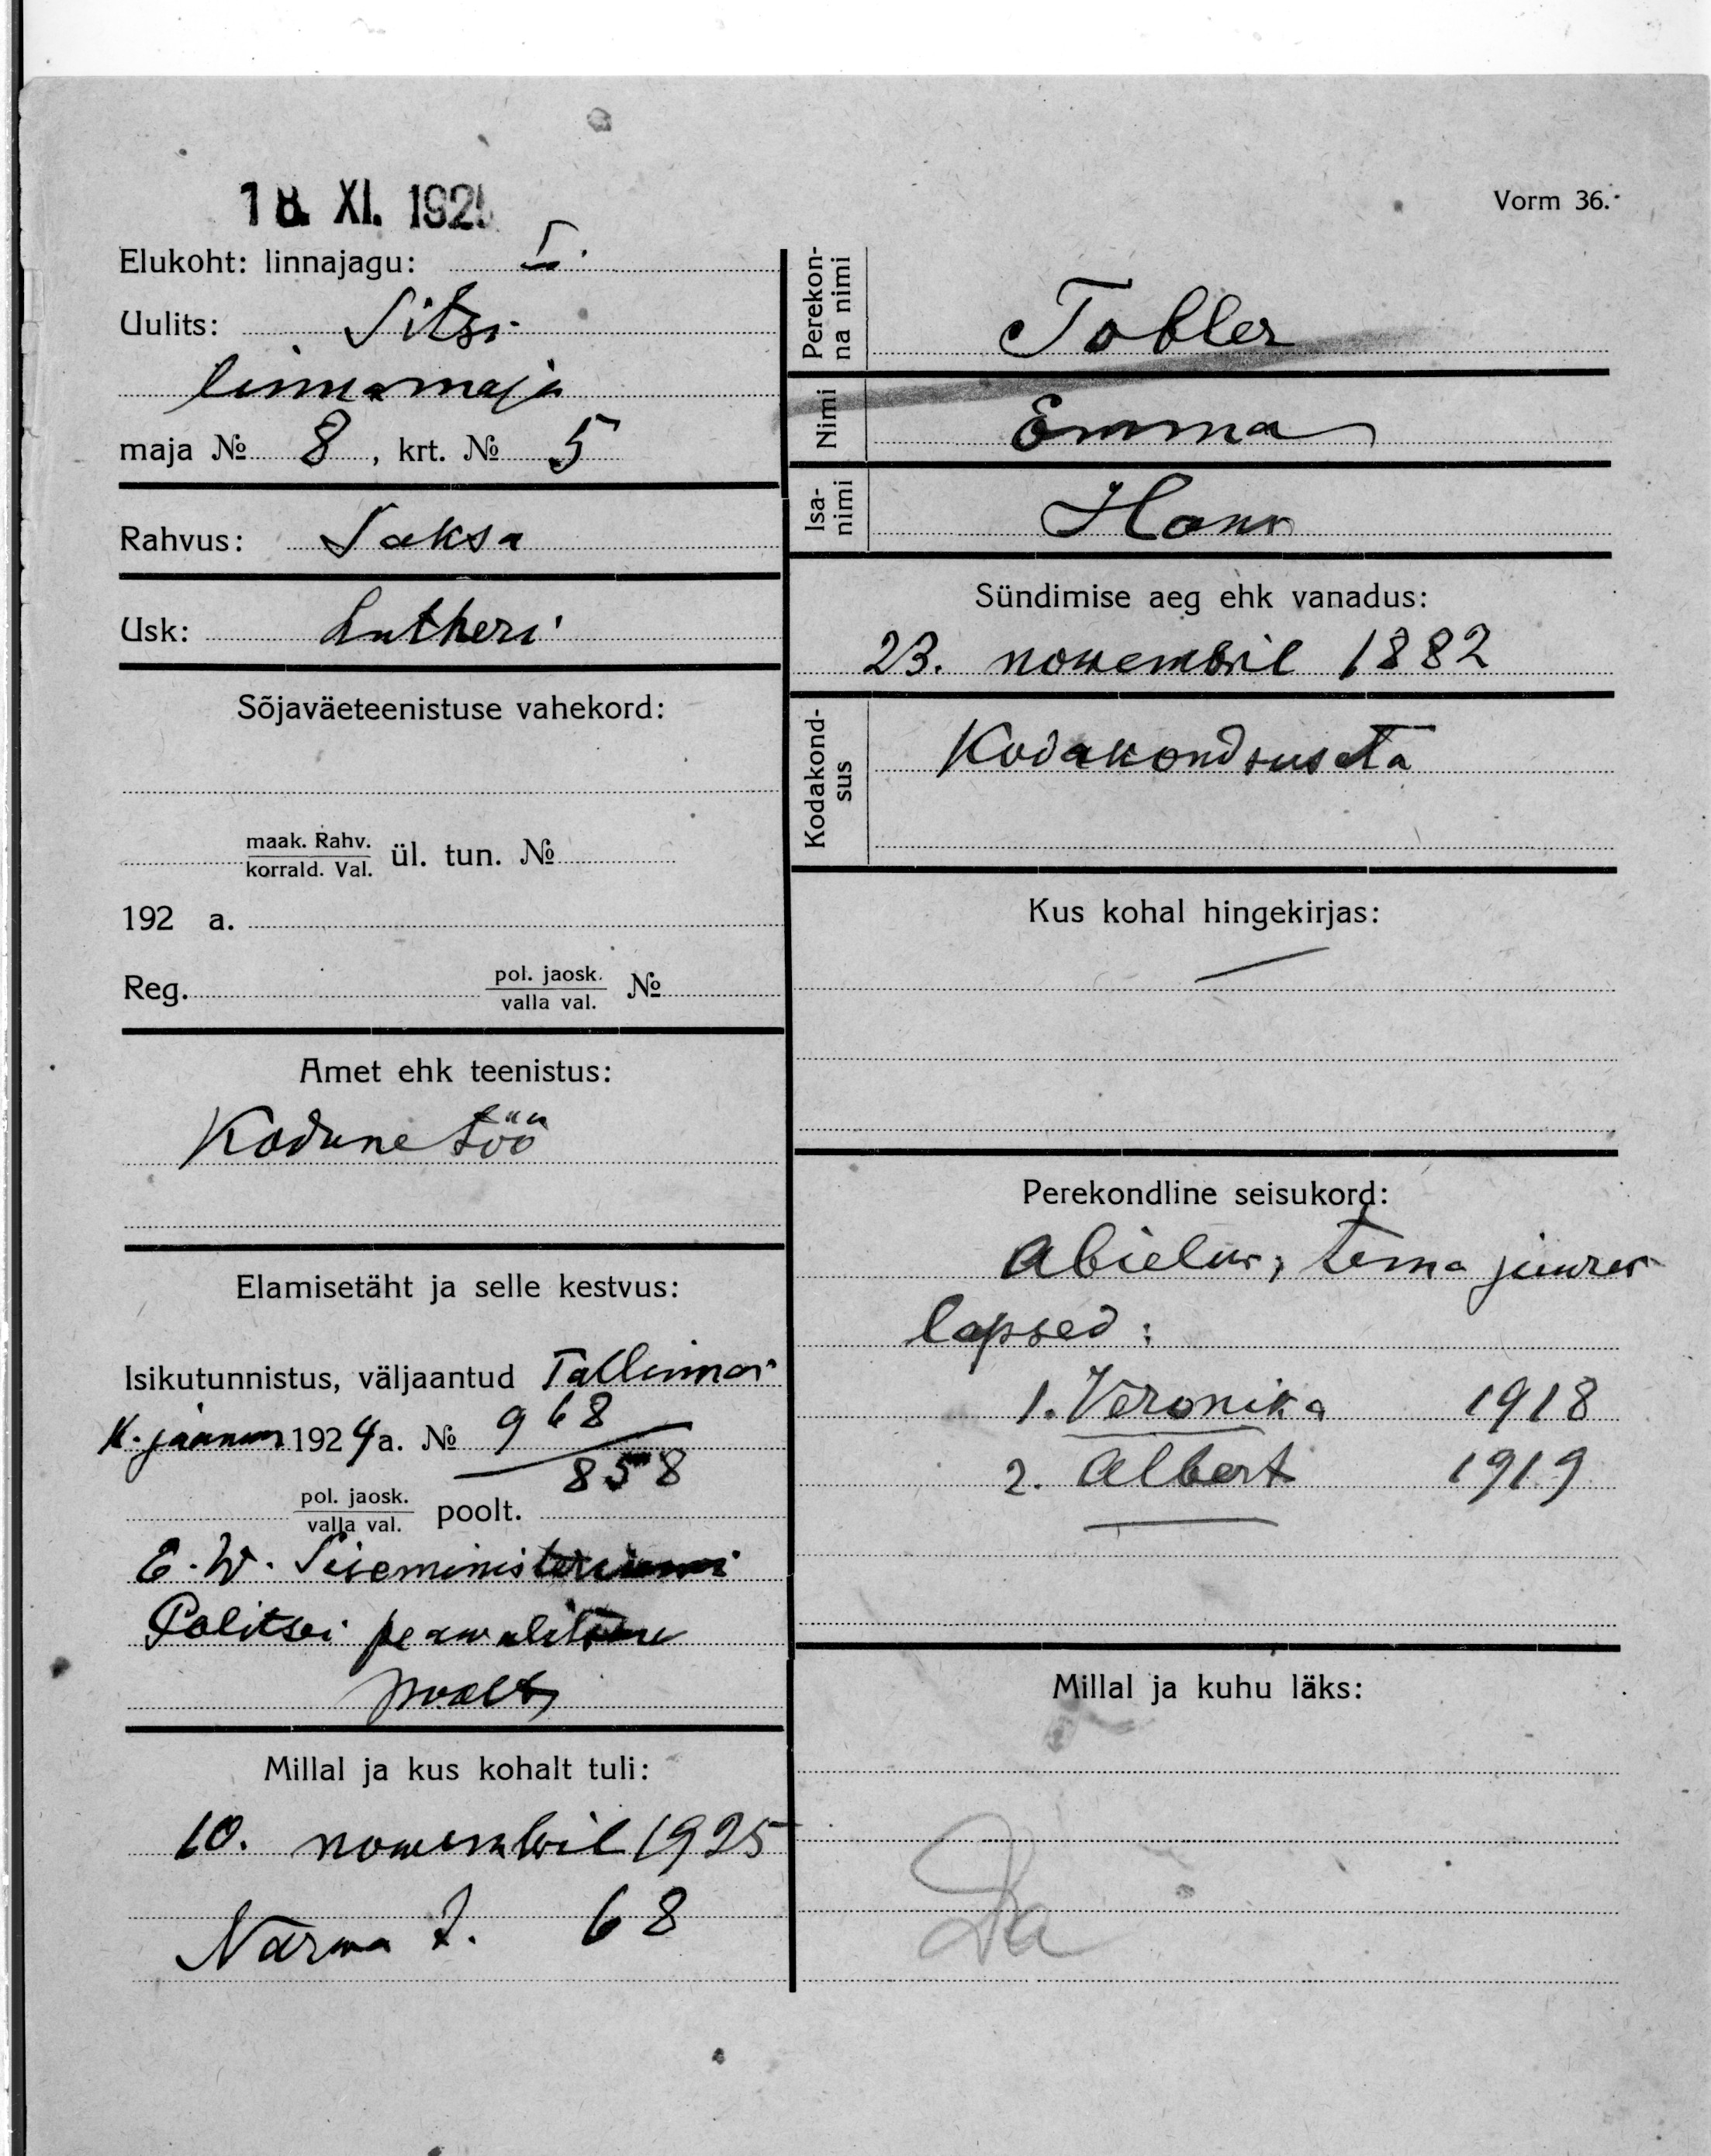 18. XI. 1925
Vorm 36.
Elukoht: linnajagu: I.
Uulits: Sitsi
linnamaja
maja № 8, krt. № 5
Rahvus: Saksa
Usk: Lutheri
Sõjaväeteenistuse vahekord:
maak. Rahv.
korrald. Val. ül. tun. №
192 a.
Reg. pol. jaosk.
valla val. №
Amet ehk teenistus:
Kodune töö
Elamisetäht ja selle kestvus:
Isikutunnistus, väljaantud Tallinnas
1924 a. № 968
858
pol. jaosk.
valla val. poolt.
E. W. Siseministeriumi
Politsei peawalitsuse
poolt
Millal ja kus kohalt tuli:
10. nowembril 1925
Narwa t. 68
Perekon-
na nimi
Tobler
Nimi
Emma
Isa-
nimi
Hans
Sündimise aeg ehk vanadus:
23. nowembril 1882
Kodakond-
sus
Kodakondsuseta
Kus kohal hingekirjas:
Perekondline seisukord:
Abielus, tema juures
lapsed:
1. Veronika 1918
2. Albert 1919
Millal ja kuhu läks: